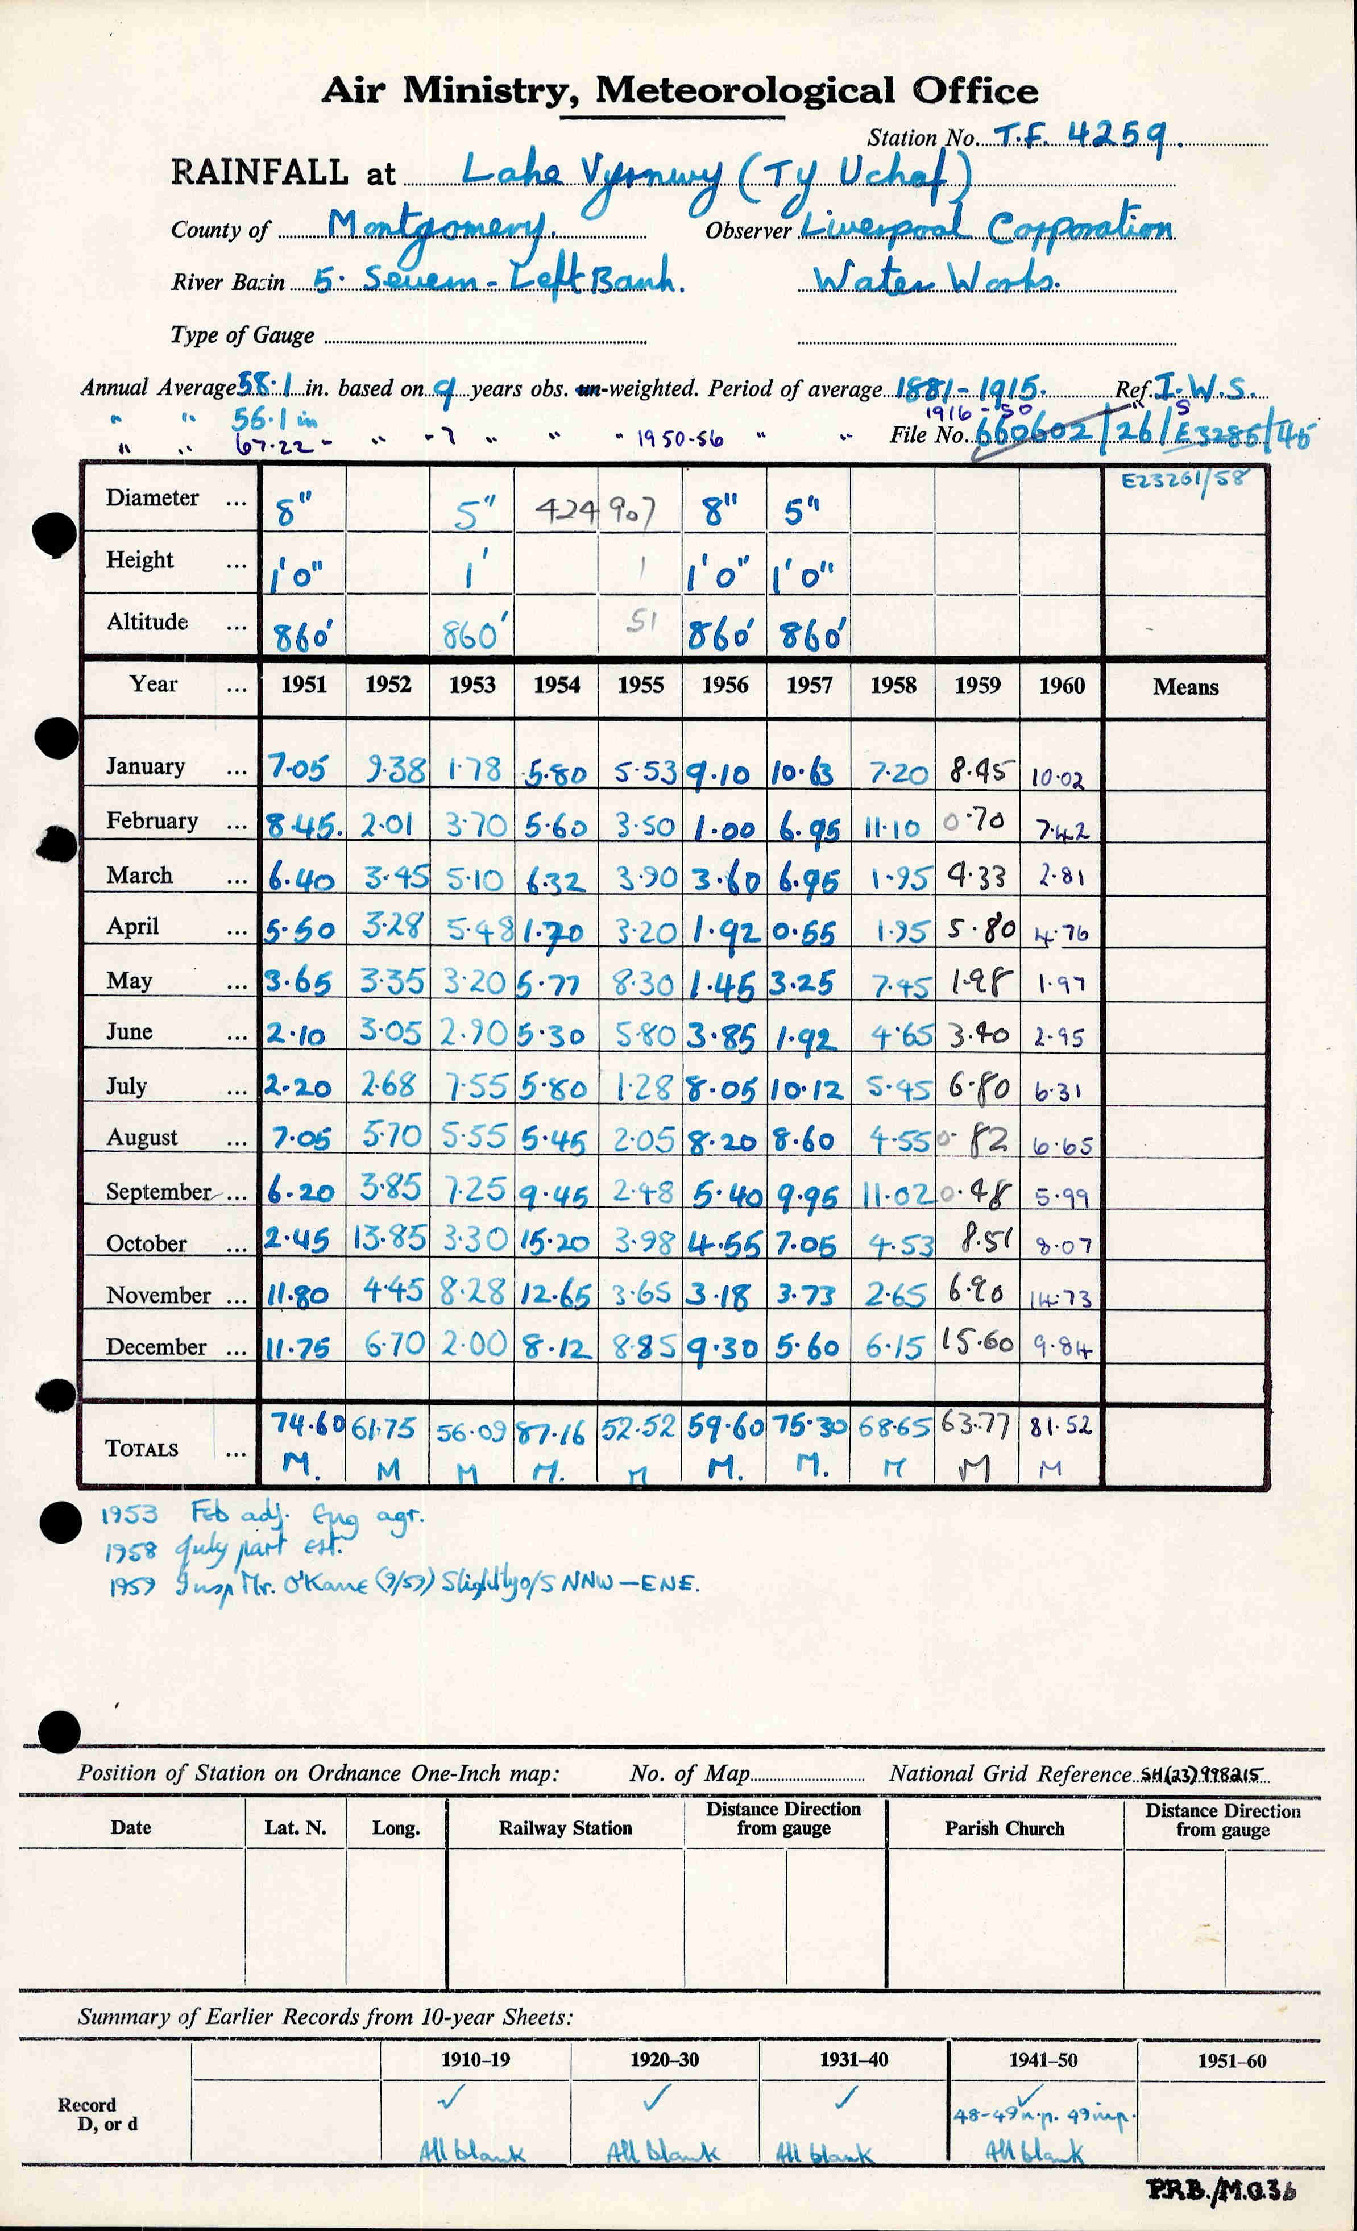 Air Ministry, Meteorological Office
Station No. T.F. 4259.
RAINFALL at Lake Vyrnwy (Ty Uchaf)
County of Montgomery. Observer Liverpool Corporation
River Basin 5. Severn - Left Bank. Water Works.
Type of Gauge
Annual Average 58.1 in. based on 9 years obs. un-weighted. Period of average 1881-1915. Ref. I.W.S.
" " 56.1 in 1916-50 " S
" " 67.22 - " - 7 " " " 1950-56 " " File No. 660602/26/E3285/45
E23261/58
Diameter ... 8" 5" 424 907 8" 5"
Height ... 1'0" 1' 1 1'0" 1'0"
Altitude ... 860' 860' 51 860' 860'
Year ... 1951 1952 1953 1954 1955 1956 1957 1958 1959 1960 Means
January ... 7.05 9.38 1.78 5.80 5.53 9.10 10.63 7.20 8.45 10.02
February ... 8.45. 2.01 3.70 5.60 3.50 1.00 6.95 11.10 0.70 7.42
March ... 6.40 3.45 5.10 6.32 3.90 3.60 6.95 1.95 4.33 2.81
April ... 5.50 3.28 5.48 1.70 3.20 1.92 0.55 1.95 5.80 4.76
May ... 3.65 3.35 3.20 5.77 8.30 1.45 3.25 7.45 1.98 1.97
June ... 2.10 3.05 2.90 5.30 5.80 3.85 1.92 4.65 3.40 2.95
July ... 2.20 2.68 7.55 5.80 1.28 8.05 10.12 5.45 6.80 6.31
August ... 7.05 5.70 5.55 5.45 2.05 8.20 8.60 4.55 0.82 6.65
September ... 6.20 3.85 7.25 9.45 2.48 5.40 9.95 11.02 0.48 5.99
October ... 2.45 13.85 3.30 15.20 3.98 4.55 7.05 4.53 8.51 8.07
November ... 11.80 4.45 8.28 12.65 3.65 3.18 3.73 2.65 6.90 14.73
December ... 11.75 6.70 2.00 8.12 8.85 9.30 5.60 6.15 15.60 9.84
TOTALS ... 74.60 61.75 56.09 87.16 52.52 59.60 75.30 68.65 63.77 81.52
M. M M M. M M. M. M M M
1953 Feb adj. Eng agr.
1958 July part est.
1959 Insp Mr. O'Kane (9/59) Slightly o/s NNW - ENE.
Position of Station on Ordnance One-Inch map: No. of Map National Grid Reference SH(23)998215
Date Lat. N. Long. Railway Station Distance Direction from gauge Parish Church Distance Direction from gauge
Summary of Earlier Records from 10-year Sheets:
1910–19 1920–30 1931–40 1941–50 1951–60
Record D, or d ✓ ✓ ✓ ✓
48-49 n.p. 49 inp.
All blank All blank All blank All blank
P.R.B./M.O.36